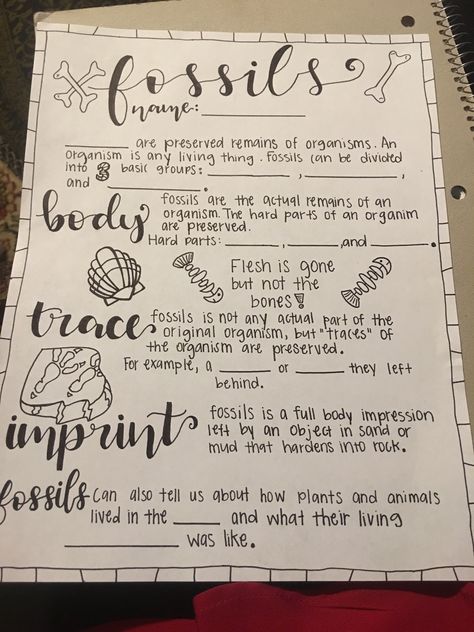 fossils
name: ____________
________ are preserved remains of organisms. An
organism is any living thing. Fossils can be divided
into 3 basic groups: __________, __________,
and __________.
body fossils are the actual remains of an
organism. The hard parts of an organim
are preserved.
Hard parts: ______, ______, and ______.
Flesh is gone
but not the
bones!
trace fossils is not any actual part of the
original organism, but "traces" of
the organism are preserved.
For example, a ______ or ______ they left
behind.
imprint fossils is a full body impression
left by an object in sand or
mud that hardens into rock.
fossils can also tell us about how plants and animals
lived in the _____ and what their living
____________ was like.